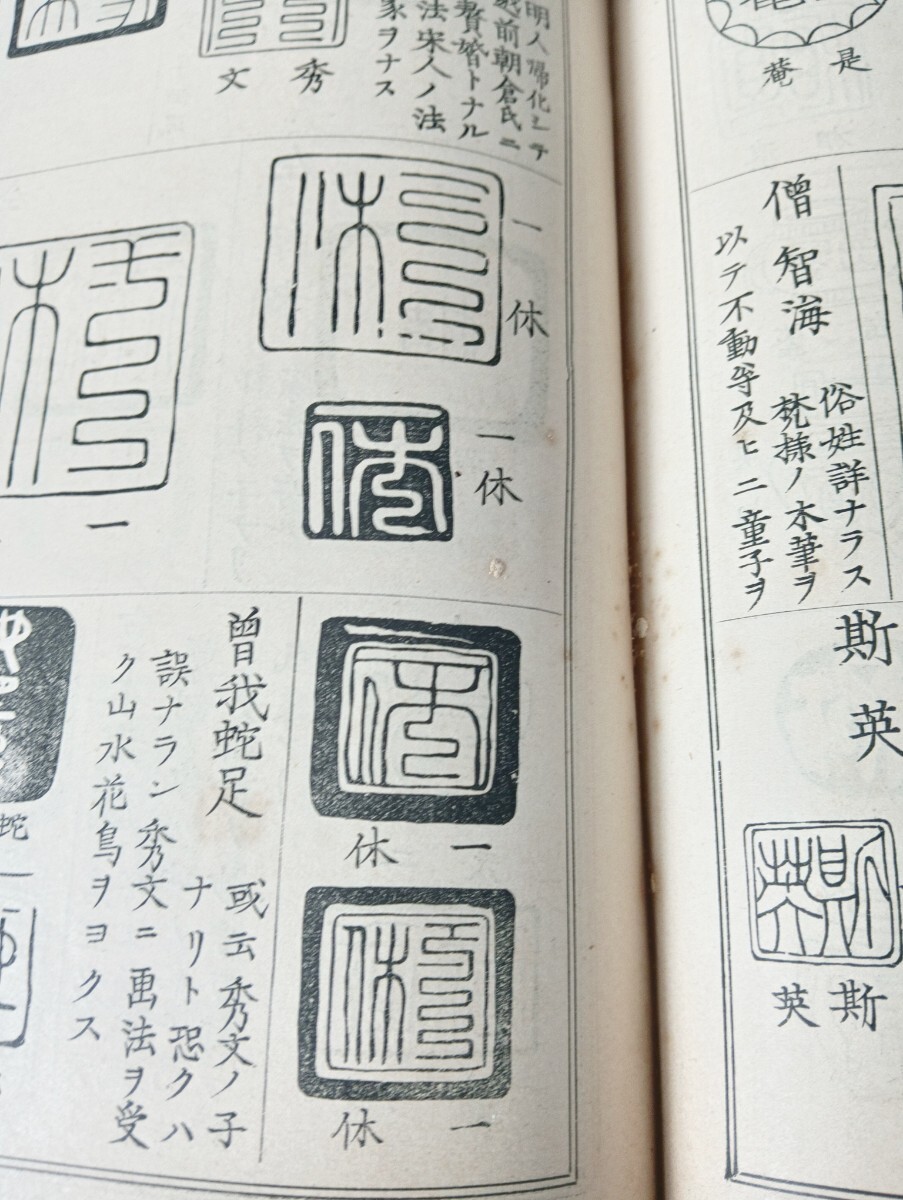 是
菴
僧智海
俗姓詳ナラス
梵様ノ木筆ヲ
以テ不動等及ヒ二童子ヲ
斯英
斯英
明人帰化シテ
越前朝倉氏ニ
贅婚トナル
法宋人ノ法
ヲナス
秀文
一休
一休
一
一休
一休
曽我蛇足
或云秀文ノ子
ナリト恐クハ
誤ナラン秀文ニ画法ヲ受
ク山水花鳥ヲヨクス
蛇